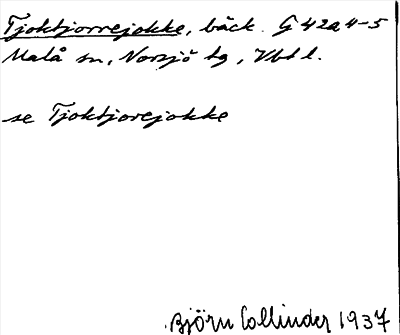 Tjoktjorrejokke, bäck. G 42a 4-5
Malå sn, Norsjö tg, Vbt l.
se Tjoktjorejokke
Björn Collinder 1937